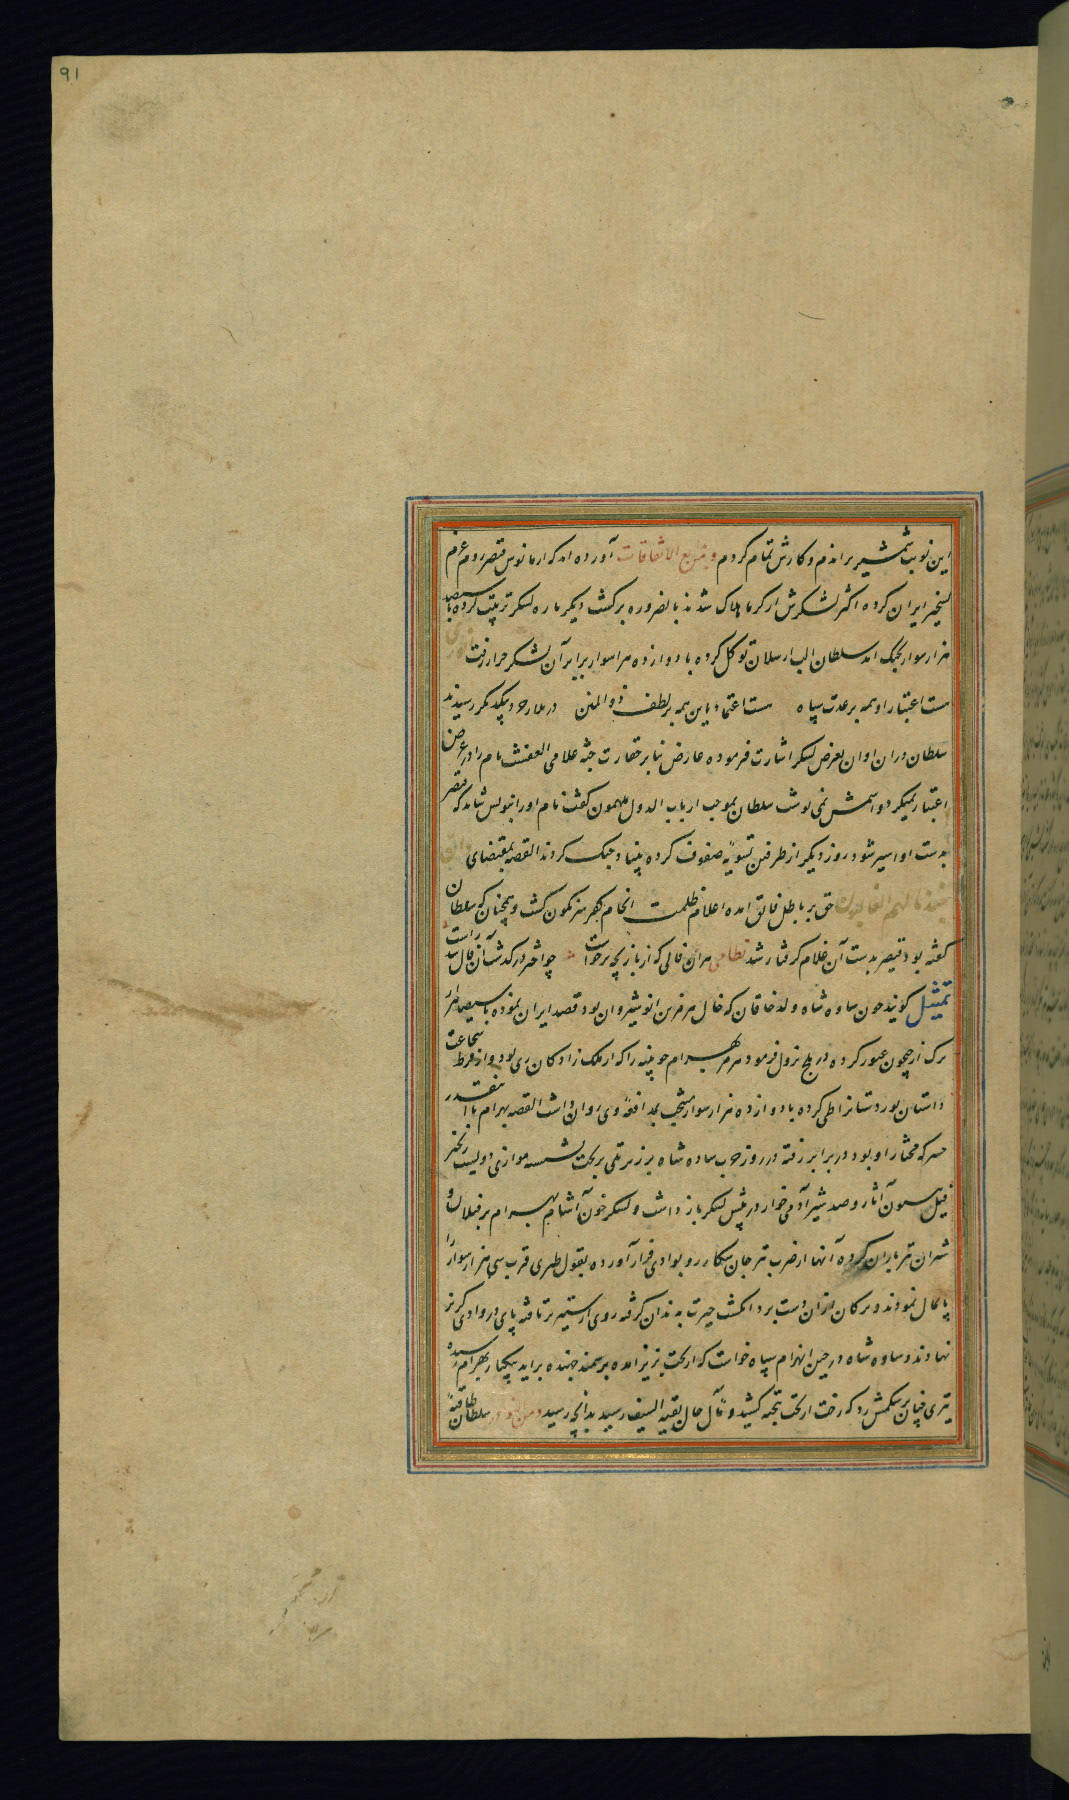 91
این نوبت شمشیر براندم و کارش تمام کردم و من بدایع الاتفاقات آورده اند که ارمانوس قیصر روم عزم
تسخیر ایران کرده اکثر لشکرش از کرما هلاک شدند بالضروره برکشت دیکر باره لشکر ترتیب کرده با سیصد
هزار سوار بجنک امد سلطان الب ارسلان توکل کرده با دوازده هزار سوار برابر آن لشکر جرار رفت
هست اعتبار او همه بر عدت سپاه هست اعتماد باین همه بر لطف ذو المنن در ملازجرد بیکدیکر رسیدند
سلطان دران اوان بعرض لشکر اشارت فرموده عارض بنا بر حقارت جثه غلامی نام را در عرض
اعتبار نمیکرد و اسمش نمی نوشت سلطان بموجب ارباب الدول ملهمون کفت نام او را بنویس شاید که قیصر
بدست او اسیر شود روز دیکر از طرفین تسویه صفوف کرده بنیاد جنک کردند القصه بمقتضای
جندنا لهم الغالبون حق بر باطل فائق امده اعلام ظلمت انجام کفر سرنکون کشت و همچنان که سلطان
کفته بود قیصر بدست آن غلام کرفتار شد نظامی هران فالی که از بازیچه برخواست چو اختر درکذشت آن فال شد راست
تمثیل کویند چون ساوه شاه ولد خاقان که خال هرمز بن انوشیروان بود قصد ایران نموده با سیصد هزار
ترک از جیحون عبور کرده در بلخ نزول فرمود هرمز بهرام چوبینه را که از ملک زادکان ری بود و از فرط شجاعت
داستان پور دستانرا طی کرده با دوازده هزار سوار منتخب بمدافعه وی روان داشت القصه بهرام با انقدر
حسر که مختار او بود در برابر رفته در روز حرب ساوه شاه بر زبر تلی بر تخت نشسته موازی دویست زنجیر
فیل بیستون آثار و صد شیر آدمی خوار در پیش لشکر باز داشت و لشکر خون آشام بهرام بر فیلان و
شیران تیرباران کرده آنها از ضرب تیر جان شکار رو بوادی فرار آورده بقول طبری قرب سی هزار سوار را
پایمال نمودند و ترکان از ان دست برد انکشت حیرت بدندان کرفته روی از ستیز برتافته پای در وادی کریز
نهادند و ساوه شاه در حین انهزام سپاه خواست که از تخت بزیر امده بر سمند جهنده براید بیکبار بهرام رسیده
تیری چنان بر شکمش زد که رخت از تخت بتخته کشید و مآل حال بقیه السیف رسید بدانچه رسید و من سلطان